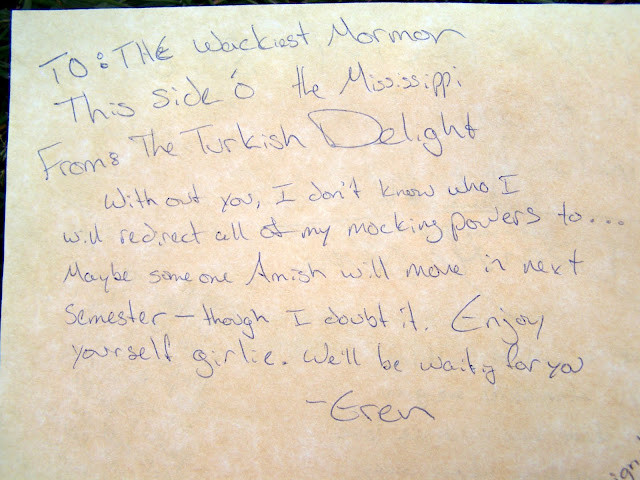 TO: THE Wackiest Mormon
This side o' the Mississippi
From: The Turkish Delight
Without you, I don't know who I
will redirect all of my mocking powers to...
Maybe someone Amish will move in next
semester — though I doubt it. Enjoy
yourself girlie. We'll be waiting for you
- Eren